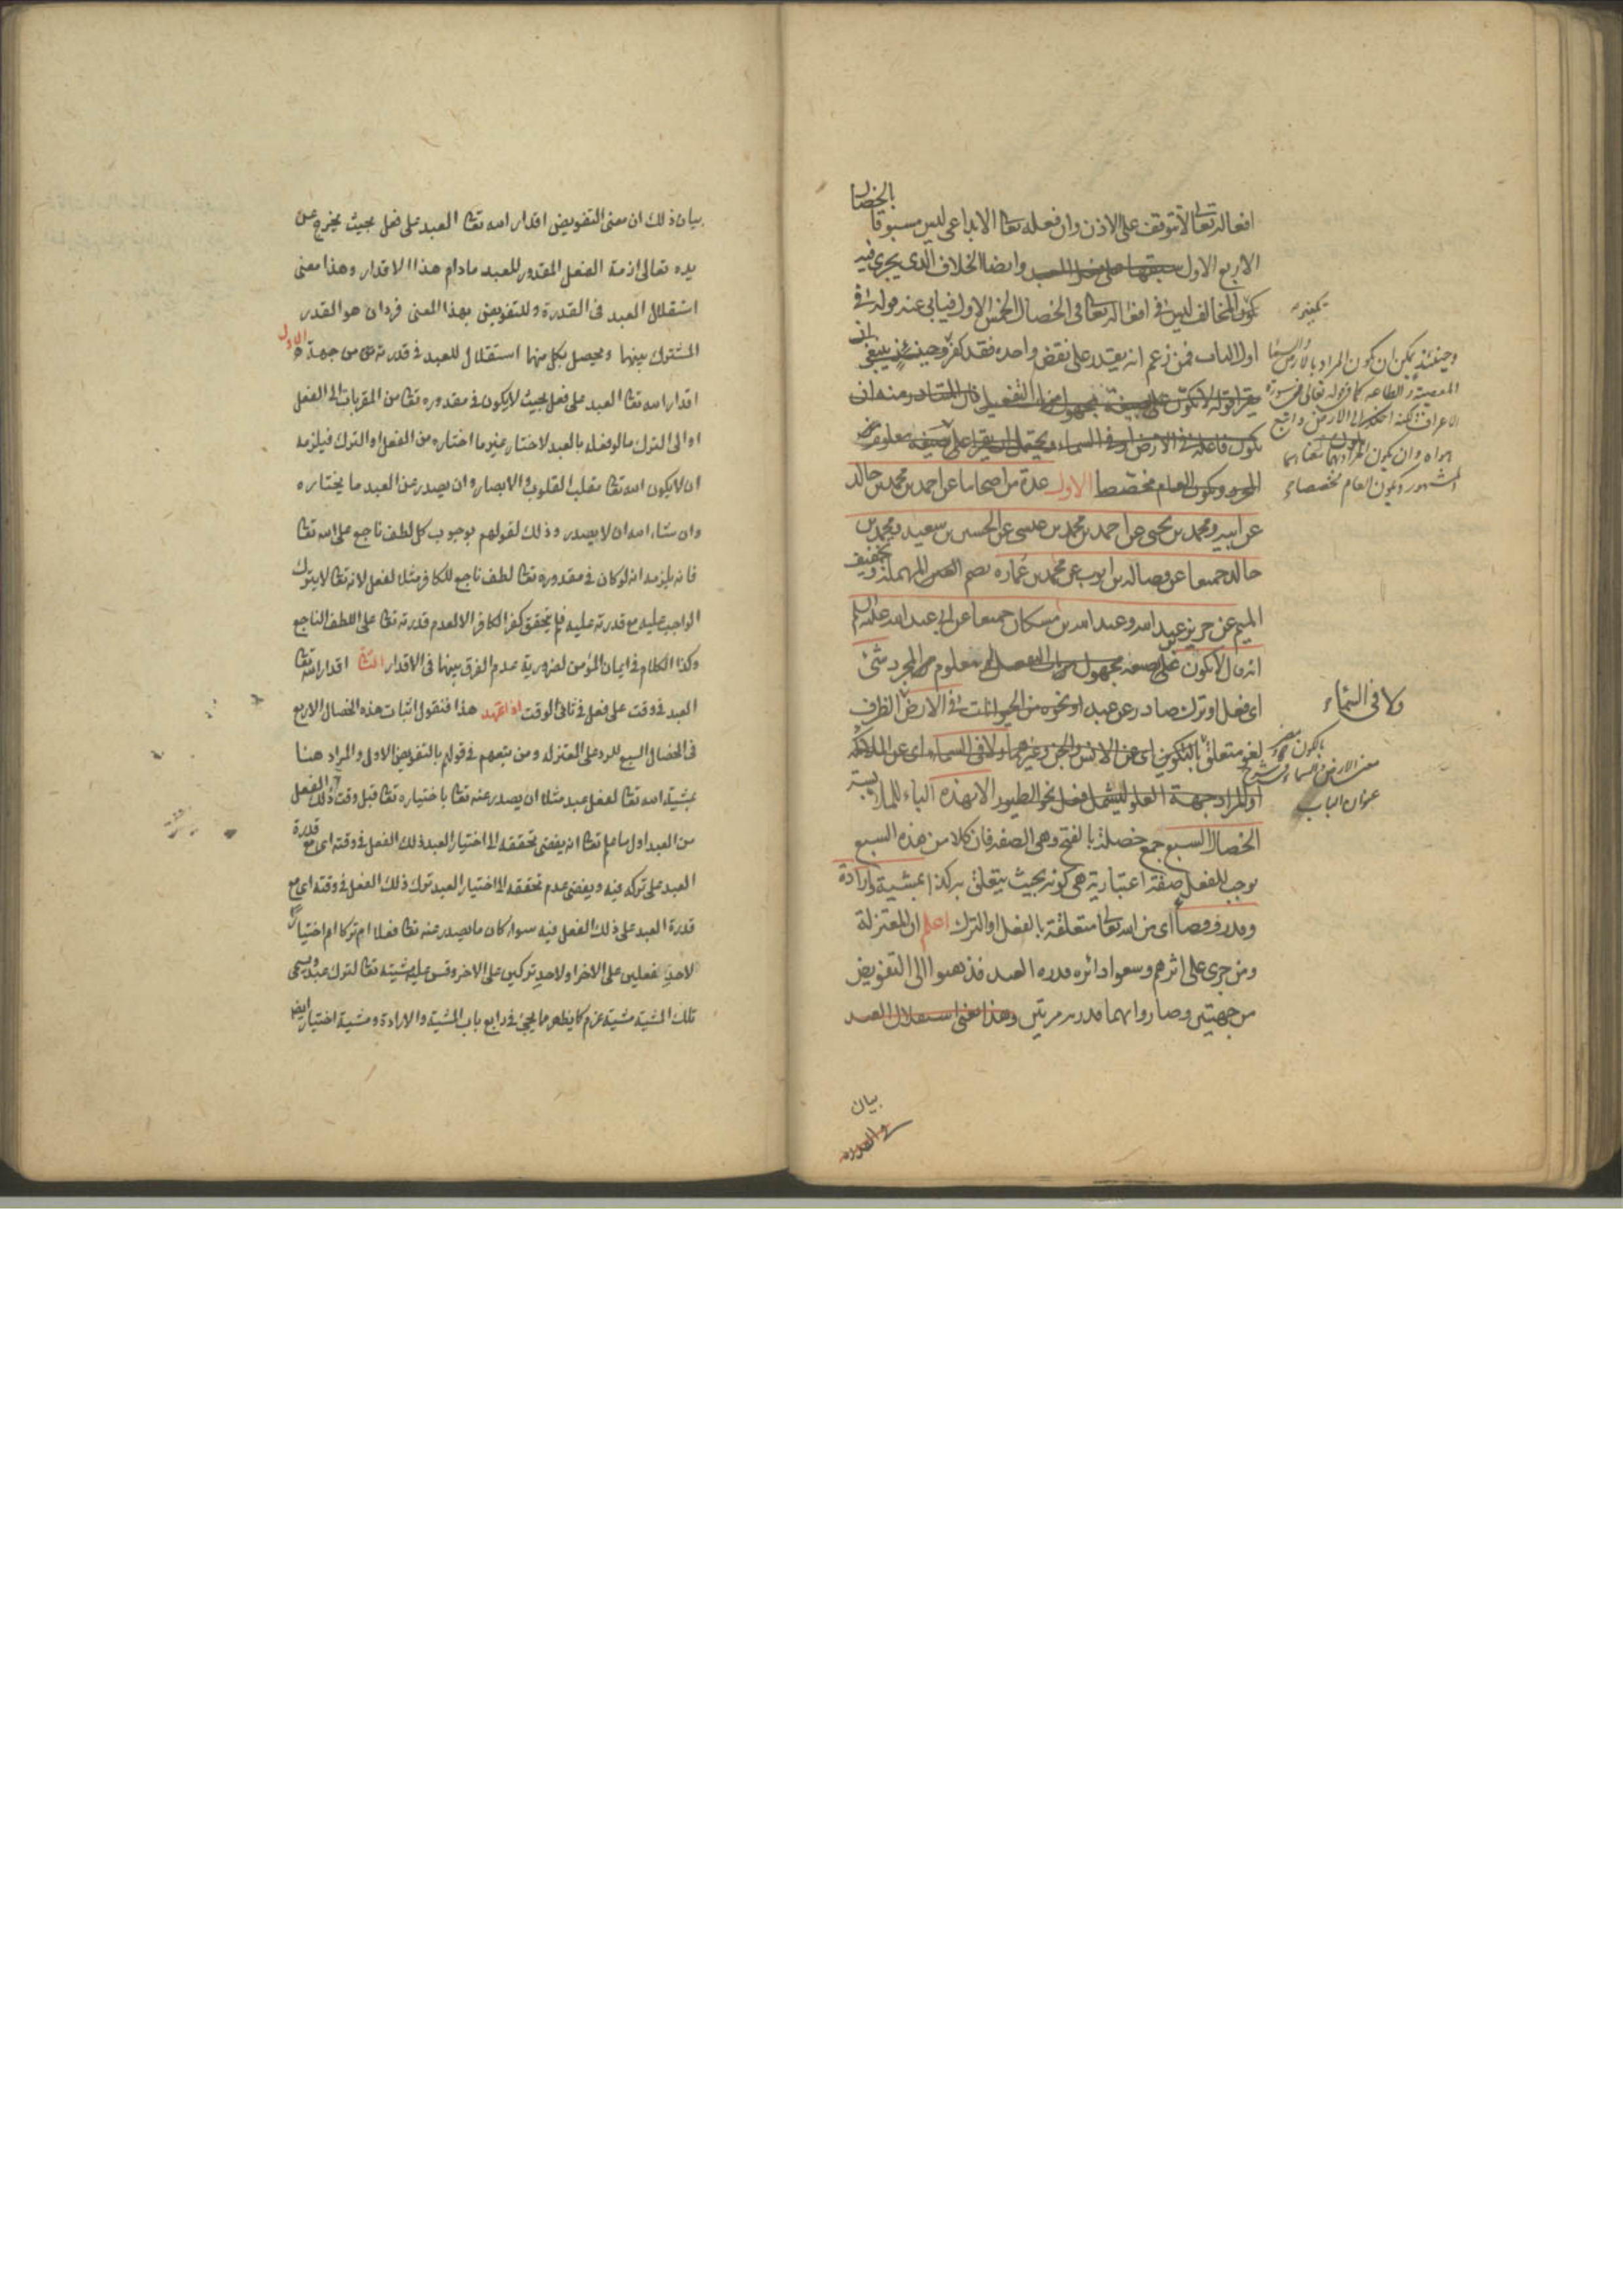 بالخصال
افعاله تعالى لا تتوقف على الاذن وان فعله تعا الابداعى ليس مسبوقا
الاربع الاول سبقها على فعل العبد وايضا الخلاف الذى يجرى فيه
تكفير المخالف ليس فى افعاله تعالى فى الخصال الخمس الاول فيابى عنه قوله فى
اول الباب فمن زعم انه يقدر على نقض واحدة فقد كفر وحينئذ ينبغى ان
يقرأ قوله لا يكون على صيغة مجهول من التفعيل فان المتبادر منه ان
يكون فاعله فى الارض او فى السماء ويحتمل ان يقرأ على صيغة معلوم من
المجرد ويكون العام مخصصا الاول عدة من اصحابنا عن احمد بن محمد بن خالد
عن ابيه ومحمد بن يحيى عن احمد بن محمد بن عيسى عن الحسين بن سعيد ومحمد بن
خالد جميعا عن فضالة بن ايوب عن محمد بن عمارة بضم العين المهملة وتخفيف
الميم عن حريز بن عبد الله وعبد الله بن مسكان جميعا عن ابى عبد الله عليه السلم
انه قال لا يكون على صيغة مجهول من باب التفعيل او معلوم من المجرد شئ
اى فعل او ترك صادر عن عبد او نحوه من الحيوانات فى الارض الظرف
لغو متعلق بالتكوين اى عن الانس والجن وغيرهما ولا فى السماء اى عن الملائكة
او المراد جهة العلو ليشمل فعل نحو الطيور الا بهذه الباء للملابسة
الخصال السبع جمع خصلة بالفتح وهى الصفة فان كلا من هذه السبع
يوجب للفعل صفة اعتبارية هى كونه بحيث يتعلق به كذا بمشية وارادة
وقدر وقضاء اى من الله تعالى متعلقة بالفعل او الترك اعلم ان المعتزلة
ومن جرى على اثرهم وسعوا دائرة قدرة العبد فذهبوا الى التفويض
من جهتين وصاروا بهما قدرية مرتين وهذا معنى استقلال العبد
بيان
تكفير
وحينئذ يمكن ان يكون المراد بالارض والسماء
المعصية والطاعة كما فى قوله تعالى فى سورة
الاعراف ولكنه اخلد الى الارض واتبع
هواه وان يكون المراد بهما معناهما
المشهور ويكون العام مخصصا
ولا فى السماء
معنى الارض والسماء فى شرح
عنوان الباب
بيان ذلك ان معنى التفويض اقدار الله تعا العبد على فعل بحيث يخرج عن
يده تعالى ازمة الفعل المقدور للعبد مادام هذا الاقدار وهذا معنى
استقلال العبد فى القدرة وللتفويض بهذا المعنى فردان هو القدر
المشترك بينهما ويحصل بكل منهما استقلال للعبد فى قدرته من جهة الاول
اقدار الله تعا العبد على فعل بحيث لا يكون فى مقدوره تعا من المقربات الى الفعل
او الى الترك ما لو فعله بالعبد لاختار غير ما اختاره من الفعل او الترك فيلزمه
ان لا يكون الله تعا مقلب القلوب والابصار وان يصدر عن العبد ما يختاره
وان شاء الله ان لا يصدر وذلك لقولهم بوجوب كل لطف ناجع على الله تعا
فانه يلزمه انه لو كان فى مقدوره تعا لطف ناجع للكافر مثلا لفعل لانه تعا لا يترك
الواجب عليه مع قدرته عليه فلم يتحقق كفر الكافر الا لعدم قدرته تعا على اللطف الناجع
وكذا الكلام فى ايمان المؤمن لضرورية عدم الفرق بينهما فى الاقدار الثانى اقدار الله تعا
العبد فى وقت على فعل فى ثانى الوقت اذا تمهد هذا فنقول اثبات هذه الخصال الاربع
فى الخصال السبع للرد على المعتزلة ومن يتبعهم فى قولهم بالتفويض الاول والمراد هنا
بمشية الله تعا لفعل عبد مثلا ان يصدر عنه تعا باختياره تعا قبل وقت ذلك الفعل
من العبد اول ما علم تعا انه يفضى تحققه الى اختيار العبد ذلك الفعل فى وقته اى مع قدرة
العبد على تركه فيه ويفضى عدم تحققه الى اختيار العبد ترك ذلك الفعل فى وقته اى مع
قدرة العبد على ذلك الفعل فيه سواء كان ما يصدر عنه تعا فعلا ام تركا ام اختيارا
لاحد الفعلين على الاخر او لاحد تركين على الاخر وقس عليه مشيته تعا لترك عبد ويسمى
تلك المشية مشية عزم كما يظهر مما يجئ فى رابع باب المشية والارادة ومشية اختيار ايض